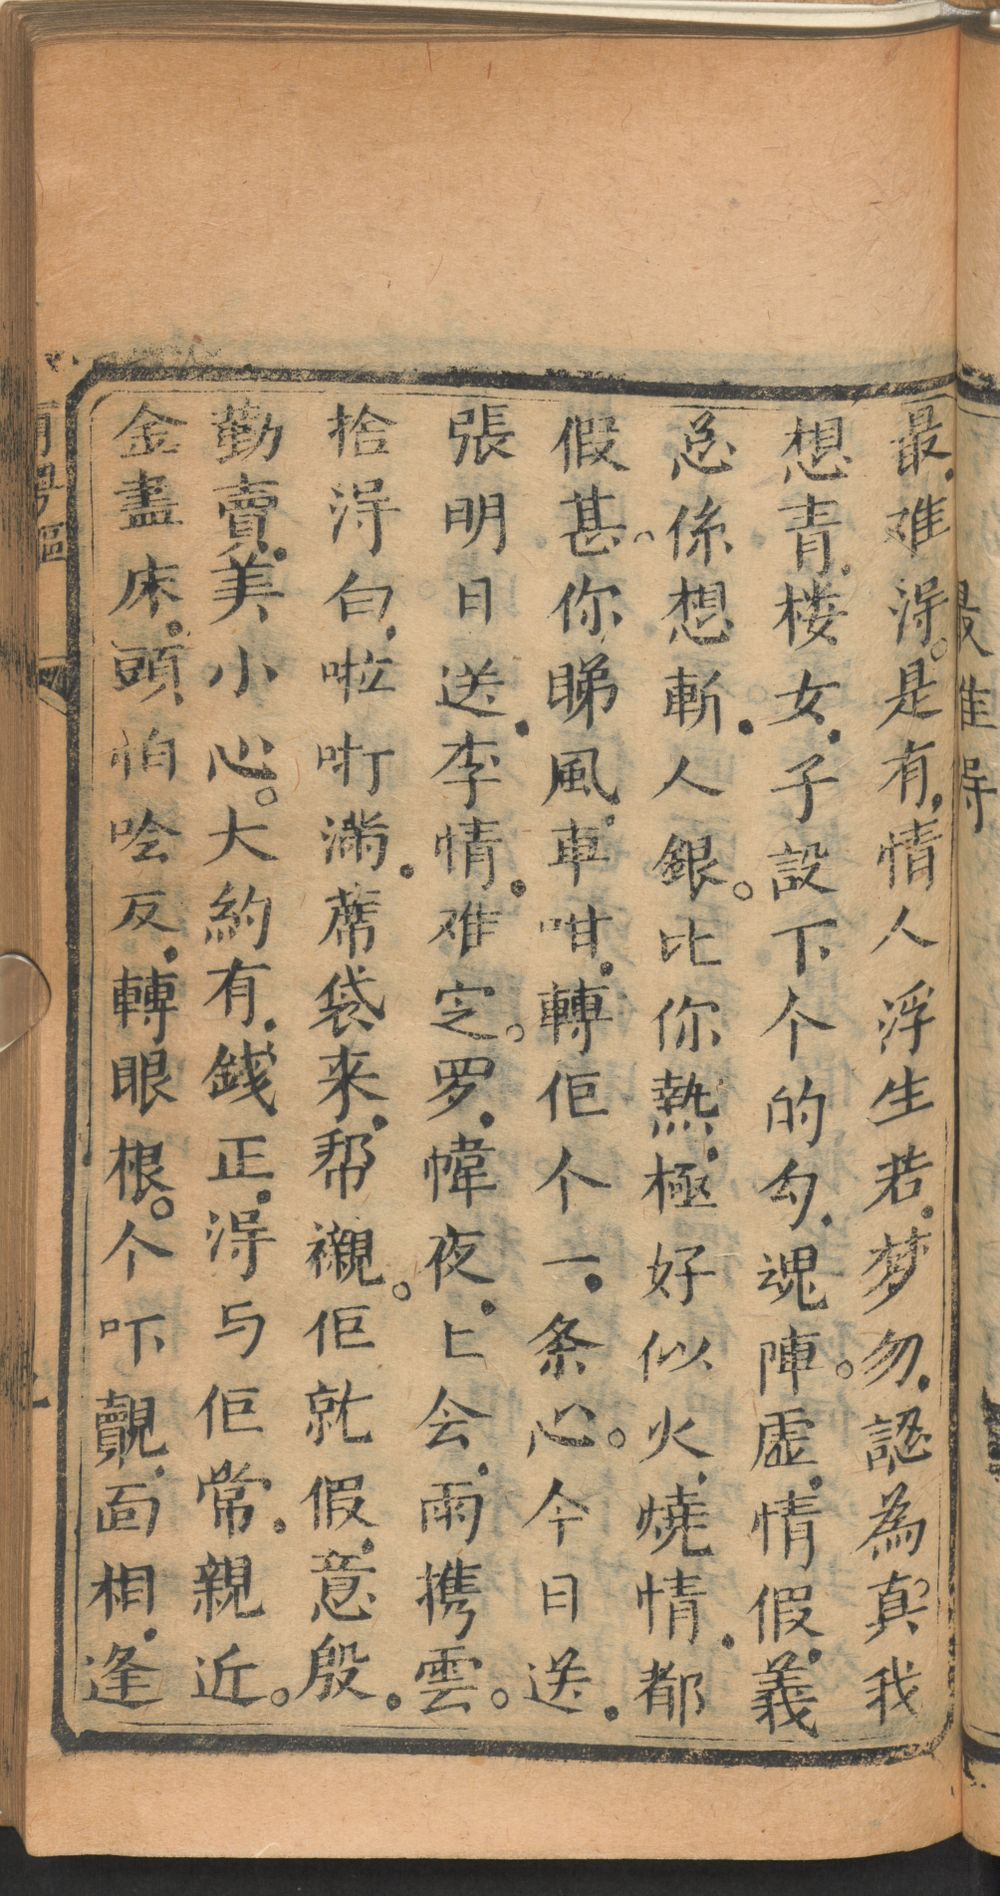 最难淂是有情人浮生若梦勿認為真我
想青楼女子設下个的勾魂陣虛情假義
总係想斬人銀比你熱極好似火燒情都
假甚你睇風車咁轉佢个一条心今日送
張明日送李情难定罗幃夜上会雨携雲
拾淂白啦咑滿蓆袋来帮襯佢就假意殷
勤賣美小心大約有錢正淂与佢常親近
金盡床頭怕唫反轉眼根个吓覿面相逢